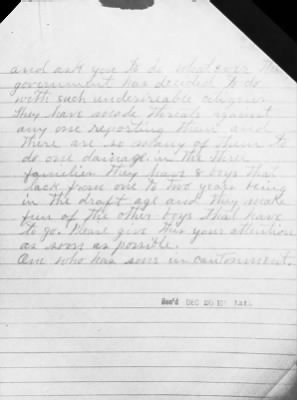 and ask you to do whatever the
government has decided to do
with such undesireable citizens
they have made threats against
any one reporting them and
there are so many of them to
do one damage. in the three
families they have 8 boys that
lack from one to two years being
in the draft age and they make
fun of the other boys that have
to go. Please give this your attention
as soon as possible.
One who has sons in cantonment.
Rec'd DEC 20 191